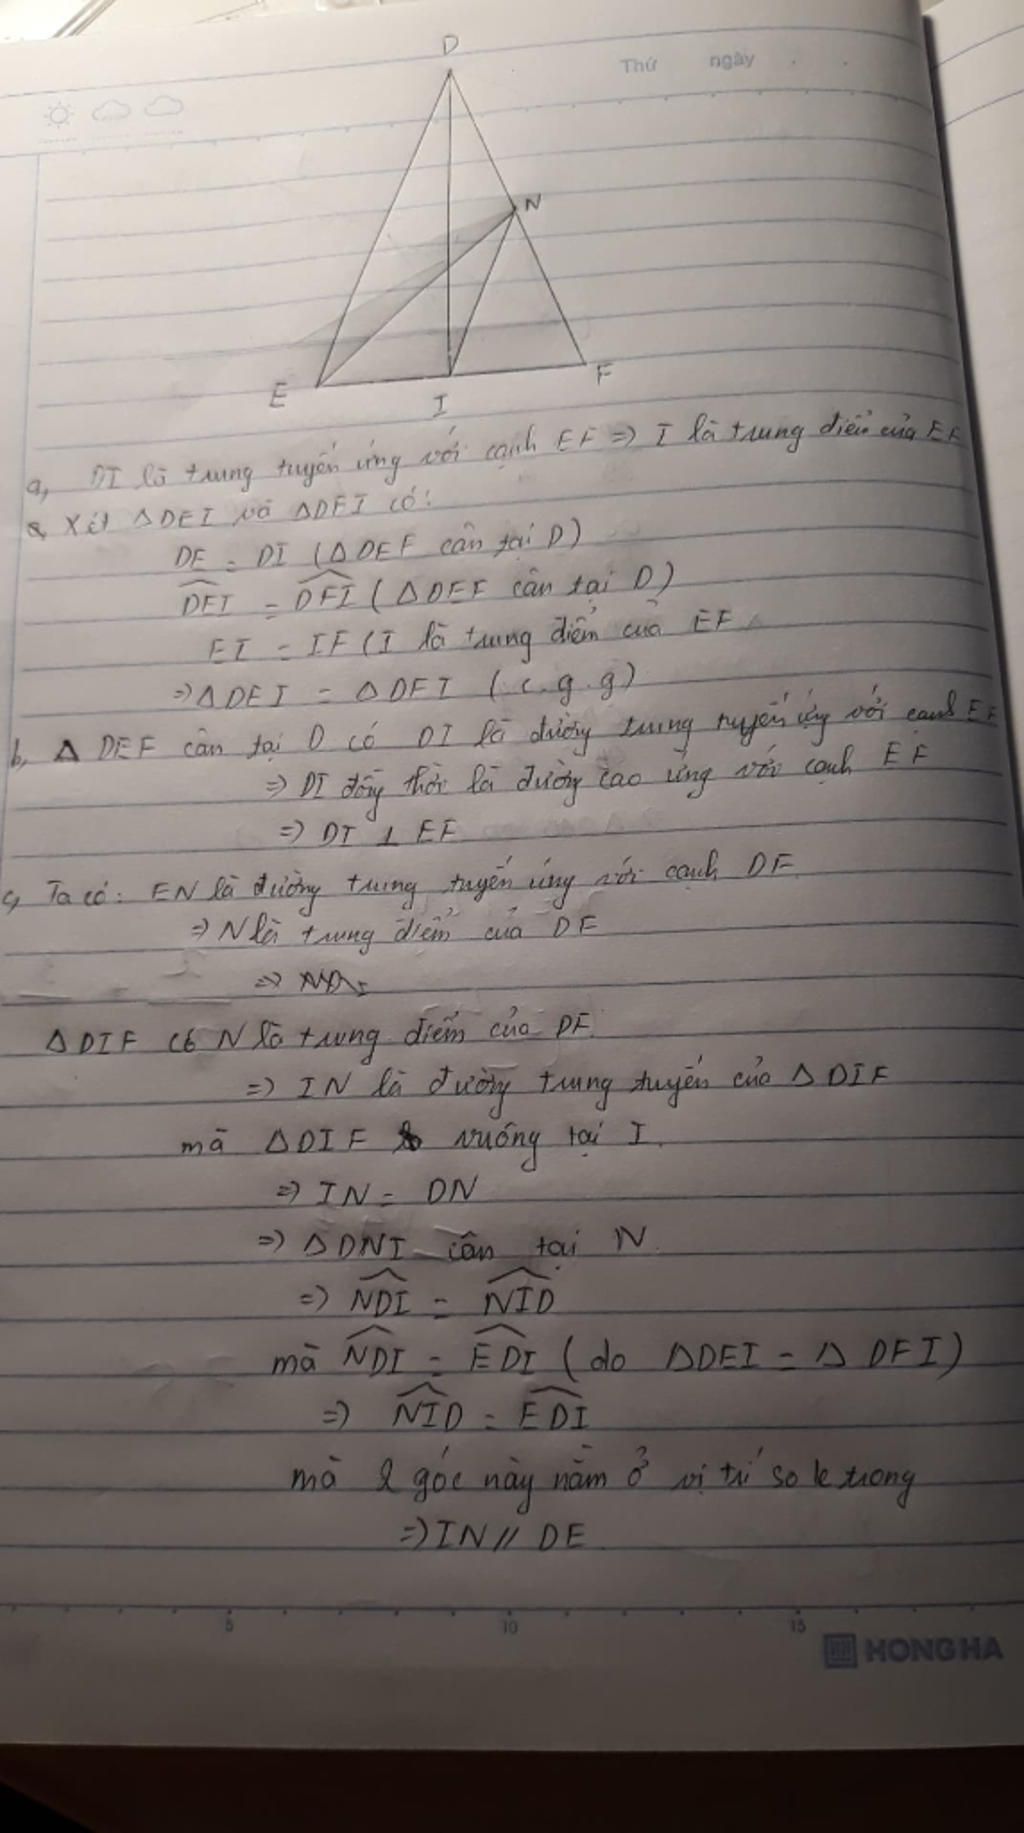 Thứ ngày
D
N
E
I
F
a, DI là trung tuyến ứng với cạnh EF => I là trung điểm của EF
Xét △DEI và △DFI có:
DE = DI (△DEF cân tại D)
DEI = DFI (△DEF cân tại D)
EI = IF (I là trung điểm của EF
=> △DEI = △DFI (c.g.g)
b, △ DEF cân tại D có DI là đường trung tuyến ứng với cạnh EF
=> DI đồng thời là đường cao ứng với cạnh EF
=> DI ⊥ EF
c, Ta có: EN là đường trung tuyến ứng với cạnh DF
=> N là trung điểm của DF
=>
△DIF có N là trung điểm của DF.
=> IN là đường trung tuyến của △DIF
mà △DIF vuông tại I.
=> IN = DN
=> △DNI cân tại N.
=> NDI = NID
mà NDI = EDI (do △DEI = △DFI)
=> NID = EDI
mà 2 góc này nằm ở vị trí so le trong
=> IN // DE
5 10 15
HONG HA